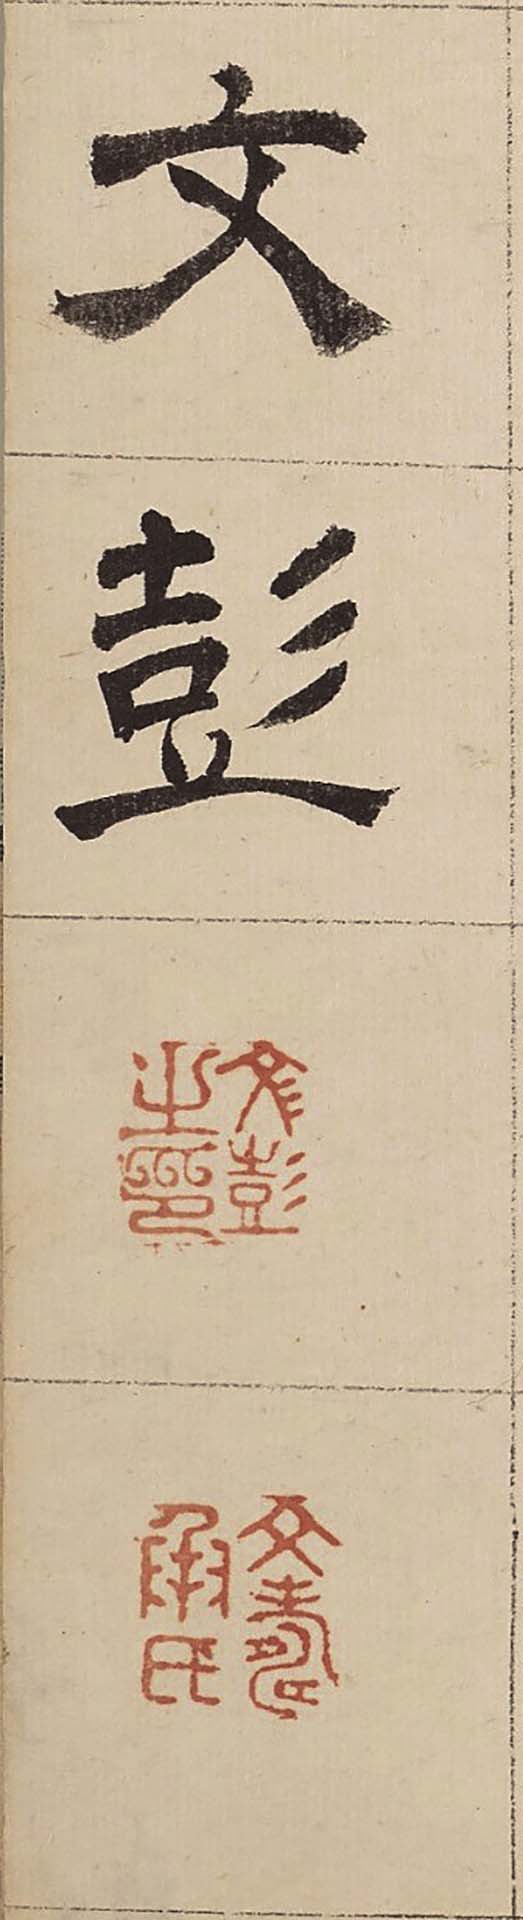 文彭
文彭之印
文壽承氏